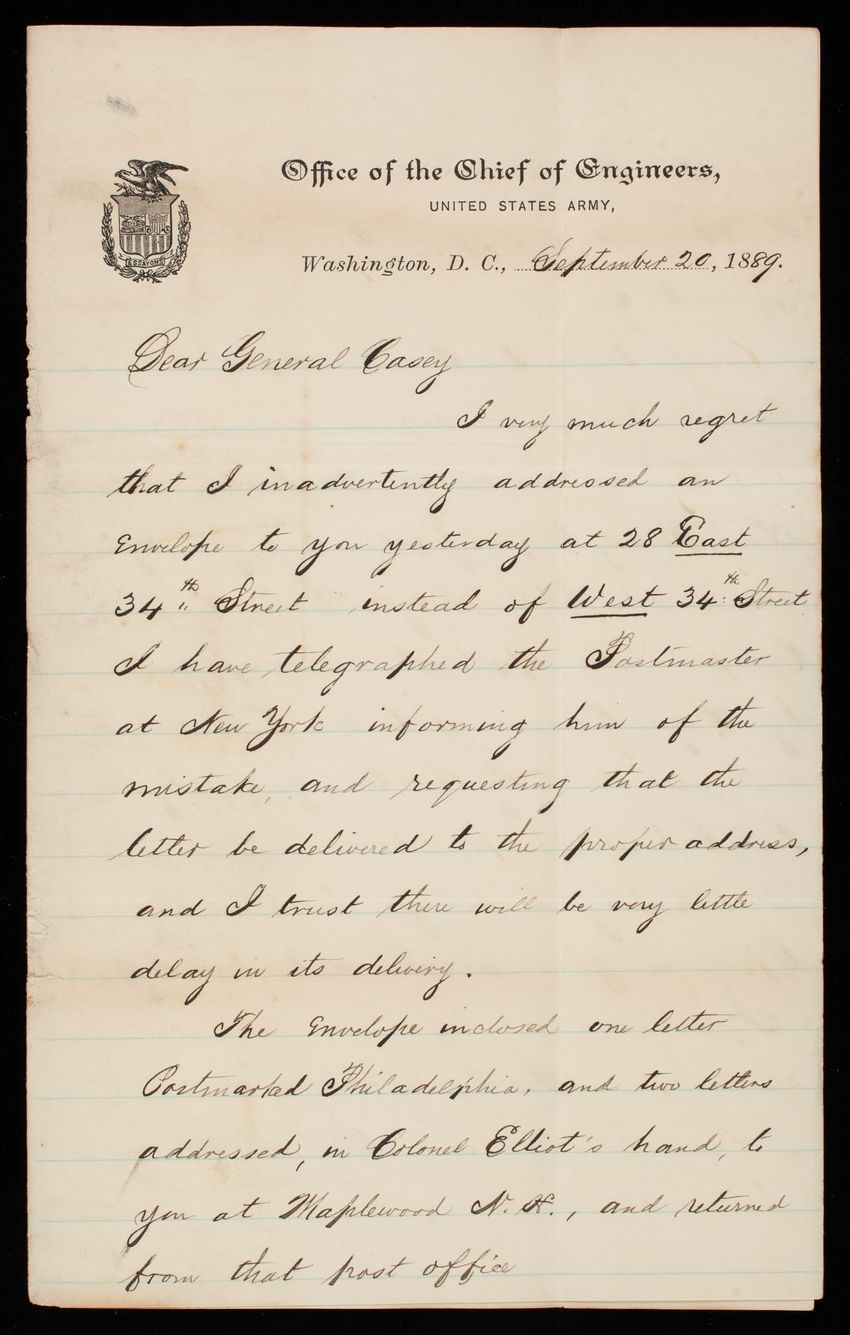 Office of the Chief of Engineers,
UNITED STATES ARMY,
Washington, D. C., September 20, 1889.
ESSAYONS
Dear General Casey
I very much regret
that I inadvertently addressed an
Envelope to you yesterday at 28 East
34th Street instead of West 34th Street
I have telegraphed the Postmaster
at New York informing him of the
mistake, and requesting that the
letter be delivered to the proper address,
and I trust there will be very little
delay in its delivery.
The Envelope inclosed one letter
Postmarked Philadelphia, and two letters
addressed, in Colonel Elliot's hand, to
you at Maplewood N. H., and returned
from that post office